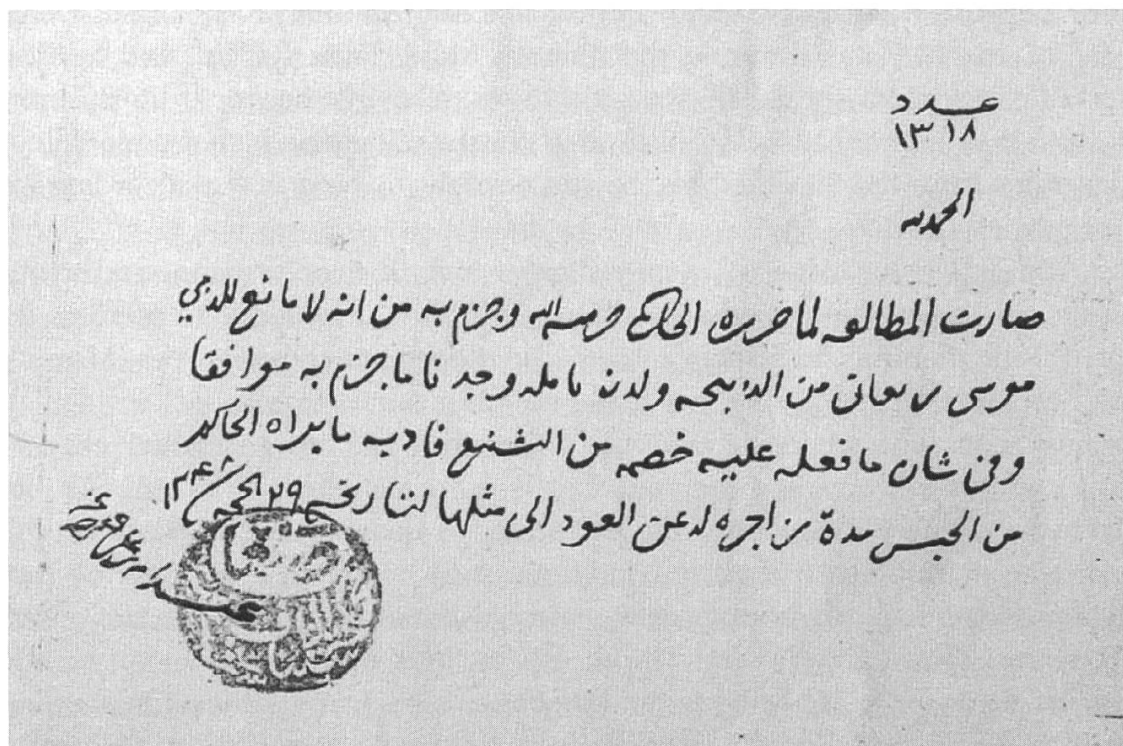 عدد
١٣١٨
الحمد لله
صارت المطالعه لما حرره الحاكم حرسه الله وجزم به من انه لا مانع للذمي
موسى من الذبيحه ولدن تامله وجدنا ما جزم به موافقا
وفى شان ما فعله عليه خصمه من الشنيع فادبه ما يراه الحاكم
من الحبس مدة زاجره له عن العود الى مثلها لتاريخه ٢٩ الحجه ١٣٤٨